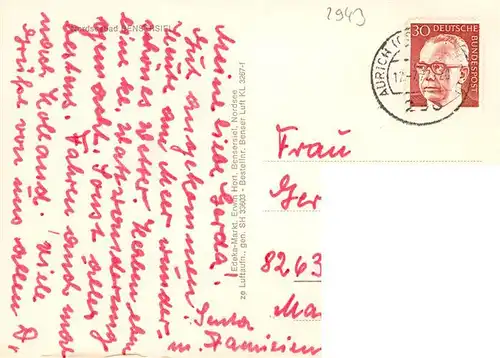 2943
Nordseebad BENSERSIEL
Meine liebe Gerda!
Gut angekommen.
Grüße am Meer wunder-
schönes Wetter. Haben eben
eine kl. Wattwanderung
gemacht. Sonst alles
bestens. Fahren auch mal
nach Holland. Viele
Grüße von uns allen
Senta
m. Familien
Edeka-Markt, Erwin Hort, Bensersiel, Nordsee
ze Luftaufn., gen. SH 33603 - Bestellnr. Benser Luft KL 3267-f
30 DEUTSCHE
BUNDESPOST
AURICH
Frau
Ger
8263
Ma